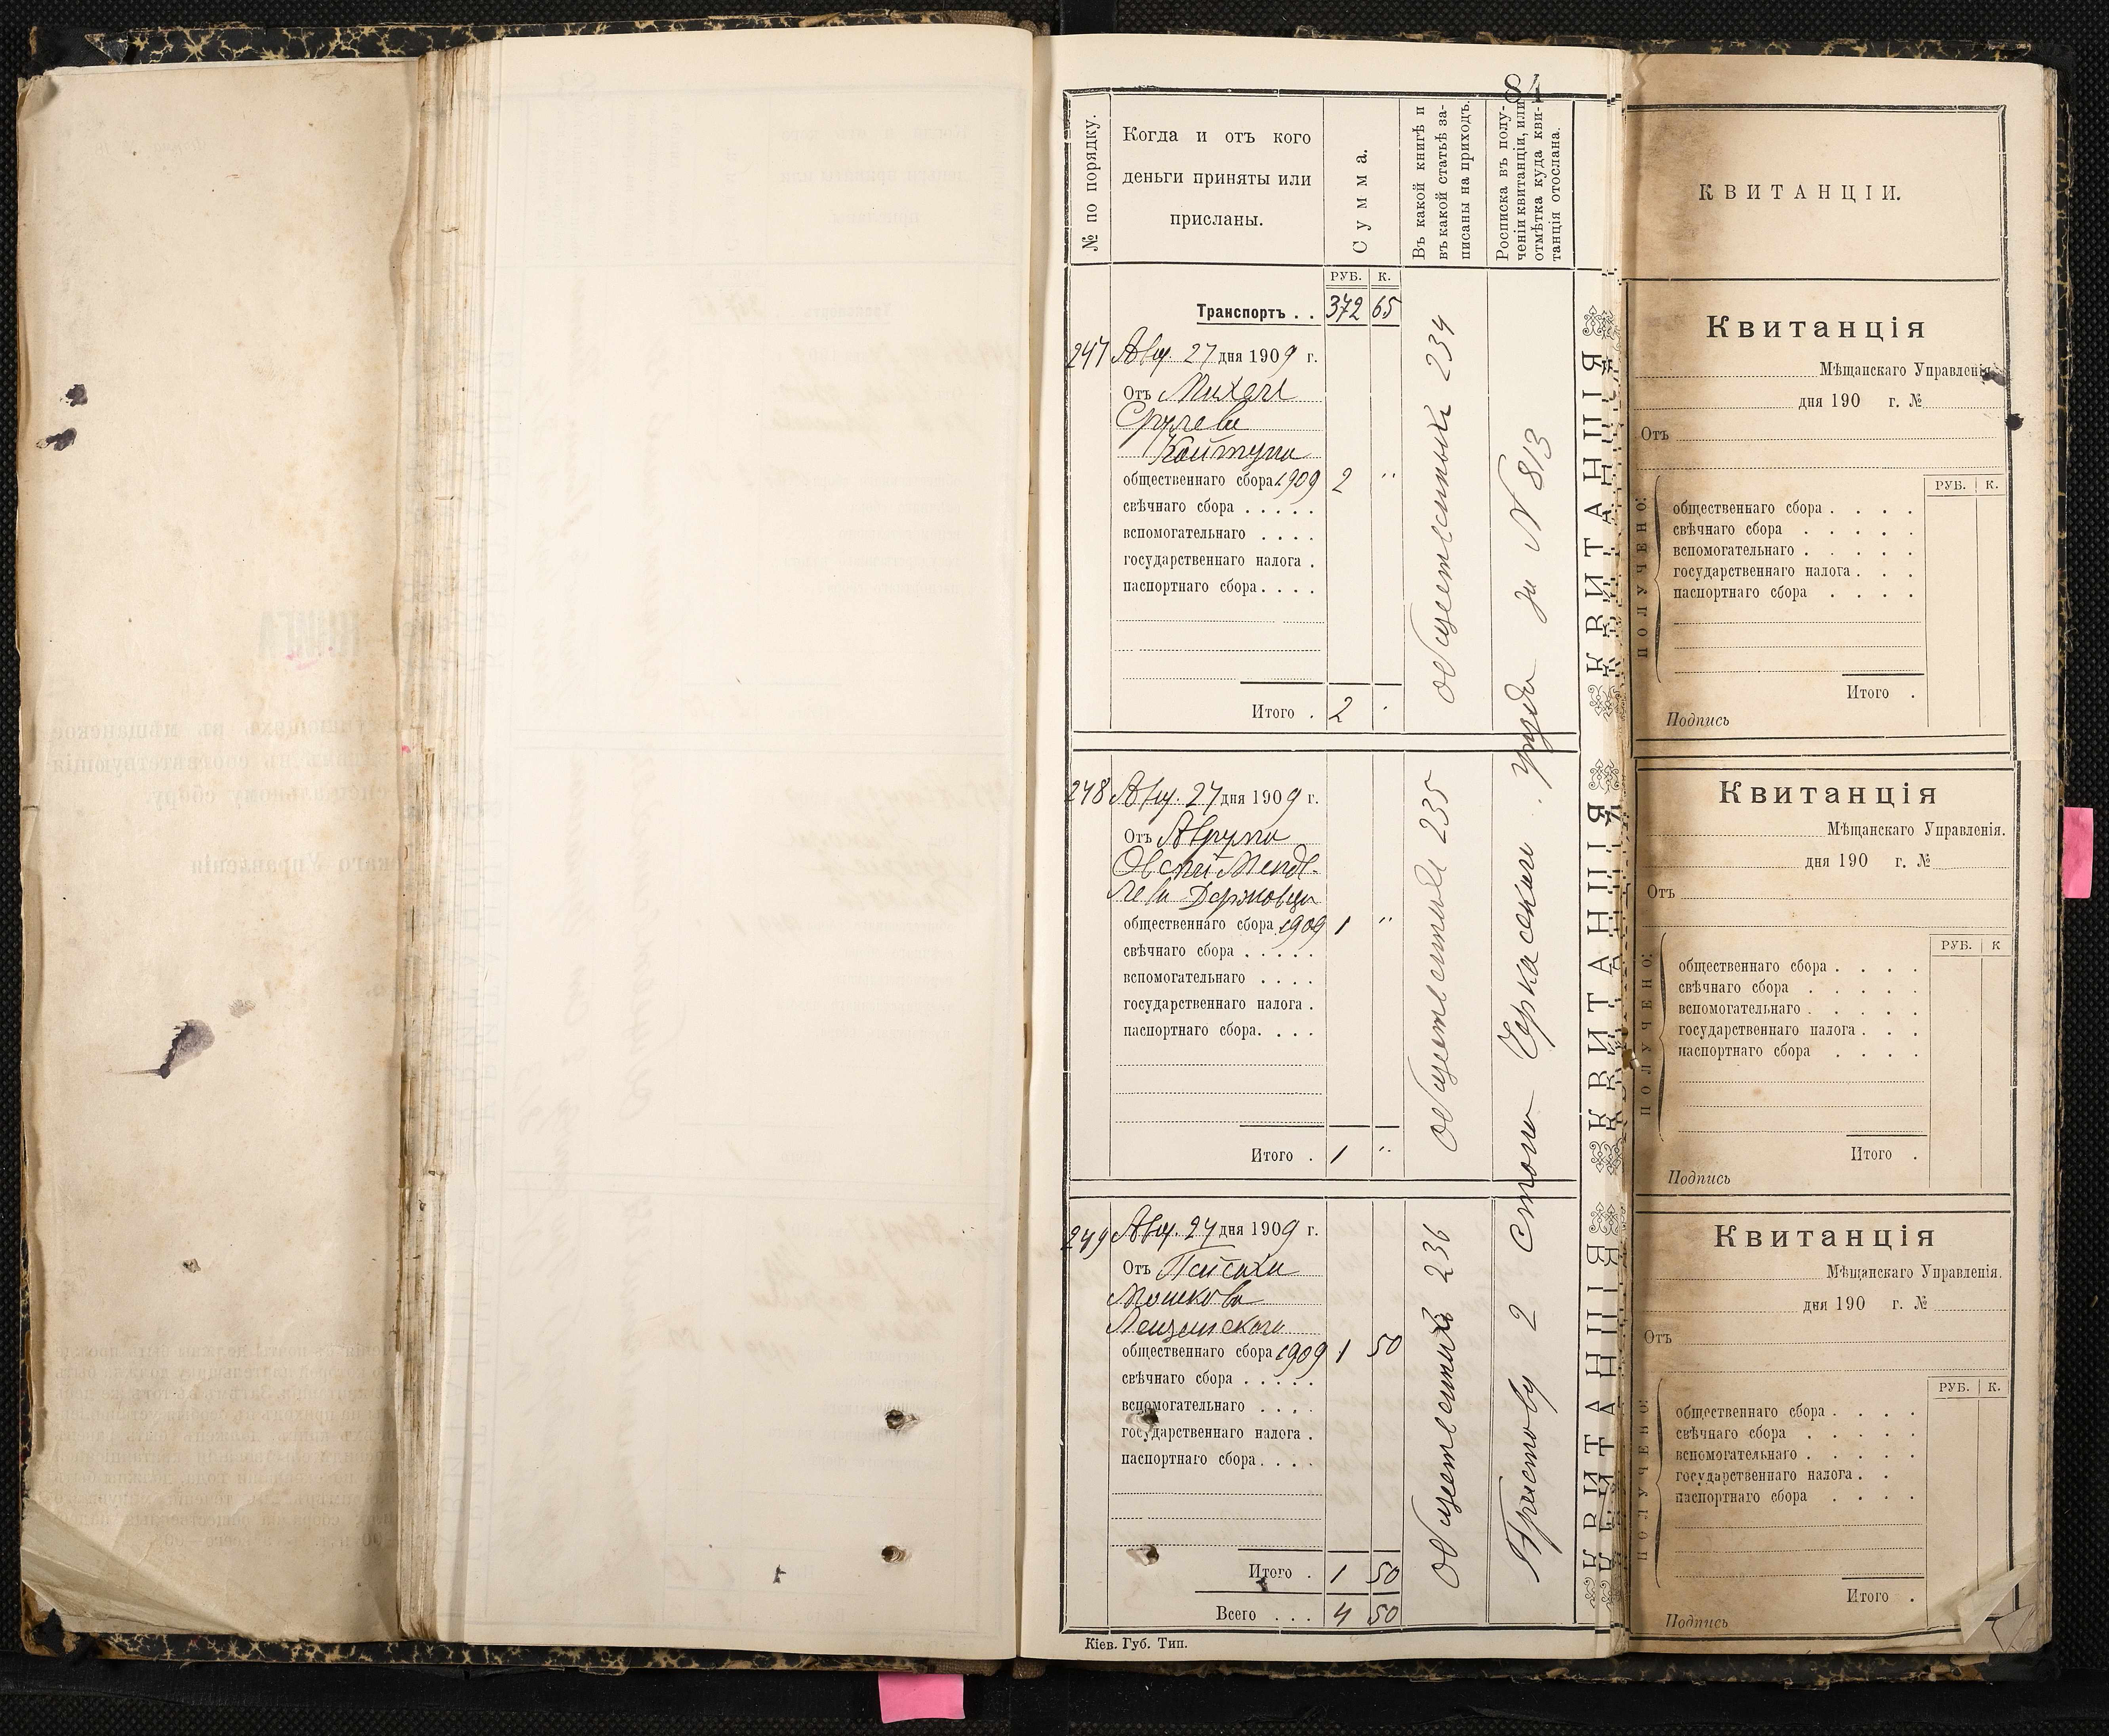 84
№ по порядку.
Когда и отъ кого
деньги приняты или
присланы.
Сумма.
Въ какой книгѣ и
въ какой статьѣ за-
писаны на приходъ.
Росписка въ полу-
ченіи квитанціи, или
отмѣтка куда кви-
танція отослана.
РУБ. К.
Транспортъ . . 372 65
247 Авг. 27 дня 1909 г.
Отъ Михеля
Срулева
Койтуна
общественнаго сбора 1909 2 "
свѣчнаго сбора . . . . .
вспомогательнаго . . . .
государственнаго налога .
паспортнаго сбора . . . .
Итого . 2 "
общественный 234
248 Авг. 27 дня 1909 г.
Отъ Аврума
Овсей Мендe-
лева
общественнаго сбора 1909 1 "
свѣчнаго сбора . . . . .
вспомогательнаго . . . .
государственнаго налога .
паспортнаго сбора. . . .
Итого . 1 "
общественный 235
249 Авг. 27 дня 1909 г.
Отъ Пейсаха
Мошкова
общественнаго сбора 1909 1 50
свѣчнаго сбора . . . . .
вспомогательнаго . . . .
государственнаго налога .
паспортнаго сбора . . . .
Итого . 1 50
Всего . . . 4 50
общественный 236
Приставу 2 стана Черкасскаго уѣзда за № 813
Кіев. Губ. Тип.
КВИТАНЦІЯ
КВИТАНЦІЯ
КВИТАНЦІЯ
КВИТАНЦІИ.
Квитанція
Мѣщанскаго Управленія.
дня 190 г. №
Отъ
РУБ. К.
ПОЛУЧЕНО:
общественнаго сбора . . . .
свѣчнаго сбора . . . . .
вспомогательнаго . . . . .
государственнаго налога . . .
паспортнаго сбора . . . .
Итого .
Подпись
Квитанція
Мѣщанскаго Управленія.
дня 190 г. №
Отъ
РУБ. К
ПОЛУЧЕНО:
общественнаго сбора . . . .
свѣчнаго сбора . . . . .
вспомогательнаго . . . . .
государственнаго налога . . .
паспортнаго сбора . . . .
Итого .
Подпись
Квитанція
Мѣщанскаго Управленія.
дня 190 г. №
Отъ
РУБ. К.
ПОЛУЧЕНО:
общественнаго сбора . . . .
свѣчнаго сбора . . . . .
вспомогательнаго . . . . .
государственнаго налога . .
паспортнаго сбора . . . .
Итого .
Подпись